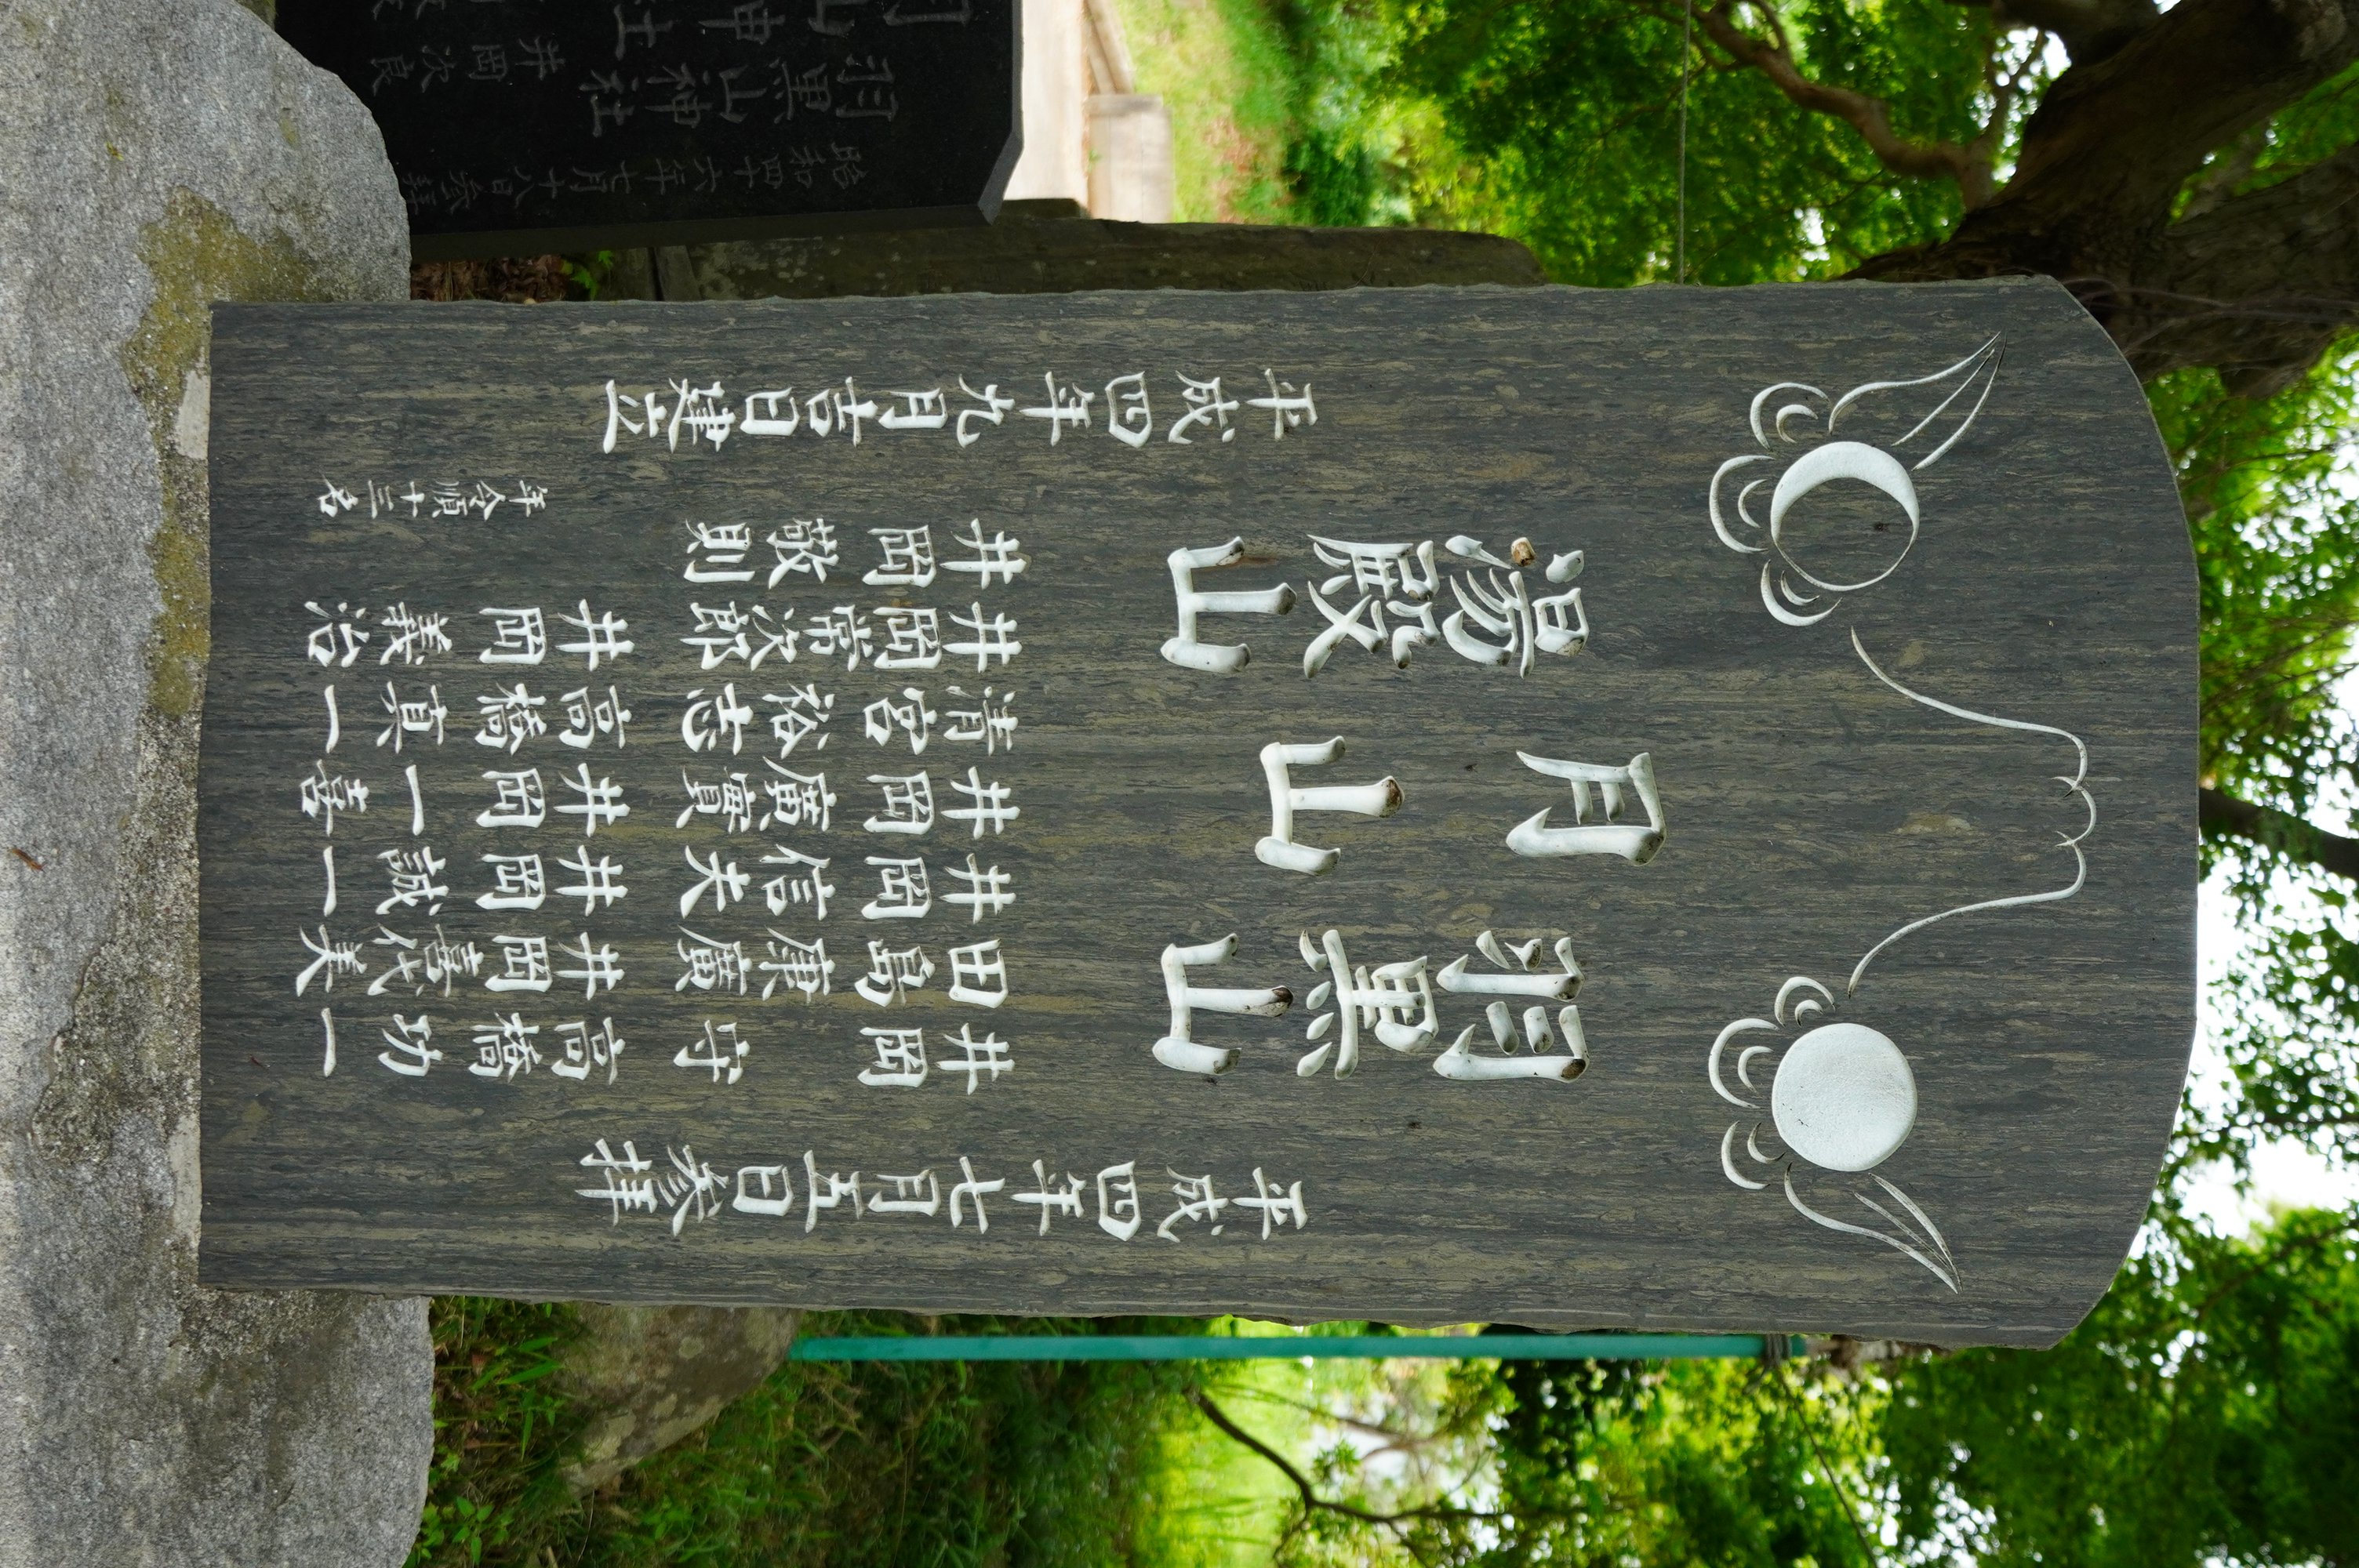 平成四年七月五日参拝
羽黒山
月山
湯殿山
井岡守
田島康廣
井岡信夫
井岡廣實
清宮裕志
井岡常次郎
井岡敬則
高橋功一
井岡喜代美
井岡誠一
井岡一喜
高橋真一
井岡義治
年令順十三名
平成四年九月吉日建立
昭和四十六年七月十八日参拝
羽黒山神社
井岡次良